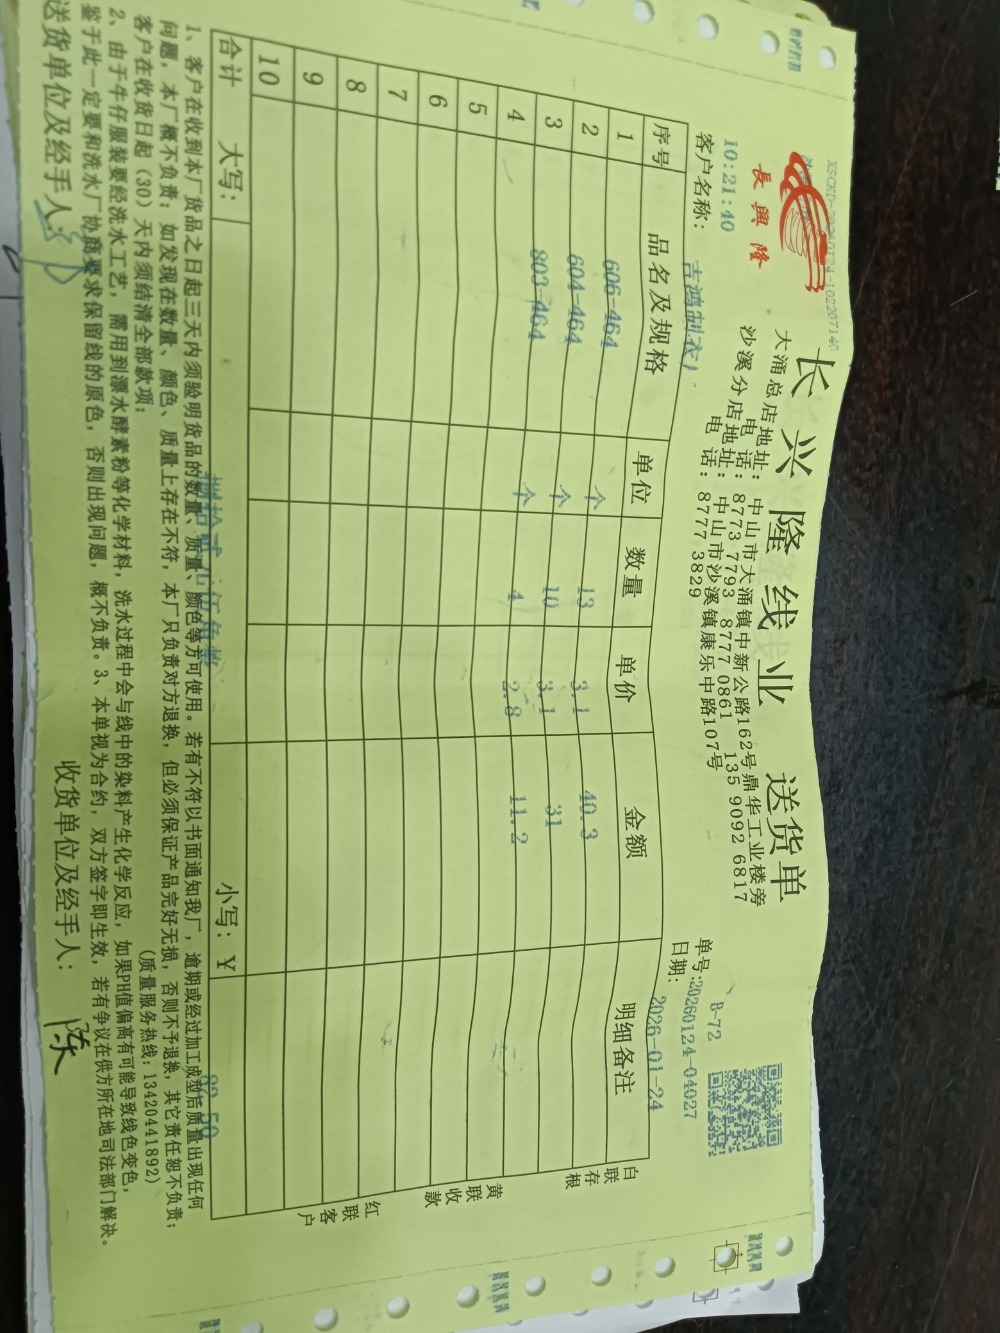 長興隆
长兴隆线业 送货单
大涌总店地址：中山市大涌镇中新公路162号鼎华工业楼旁
电话：8773 7793 8777 0861 135 9092 6817
沙溪分店地址：中山市沙溪镇康乐中路107号
电话：8777 3829
10:21:40
B-72
单号:20260124-04027
客户名称：吉鸿制衣厂
日期：2026-01-24
序号 品名及规格 单位 数量 单价 金额 明细备注
1 606-464 个 13 3.1 40.3
2 604-464 个 10 3.1 31
3 803-464 个 4 2.8 11.2
4
5
6
7
8
9
10
合计 大写： 小写：￥
捌拾贰元伍角整 82.50
白联存根
黄联收款
红联客户
1、客户在收到本厂货品之日起三天内须验明货品的数量、质量、颜色等方可使用。若有不符以书面通知我厂，逾期或经过加工成型后质量出现任何
问题，本厂概不负责；如发现在数量、颜色、质量上存在不符，本厂只负责对方退换，但必须保证产品完好无损，否则不予退换，其它责任恕不负责；
客户在收货日起（30）天内须结清全部款项； （质量服务热线：13420441892）
2、由于牛仔服装要经洗水工艺，需用到漂水酵素粉等化学材料，洗水过程中会与线中的染料产生化学反应，如果PH值偏高有可能导致线色变色，
鉴于此一定要和洗水厂协商要求保留线的原色，否则出现问题，概不负责。3、本单视为合约，双方签字即生效，若有争议在供方所在地司法部门解决。
送货单位及经手人： 收货单位及经手人：陈